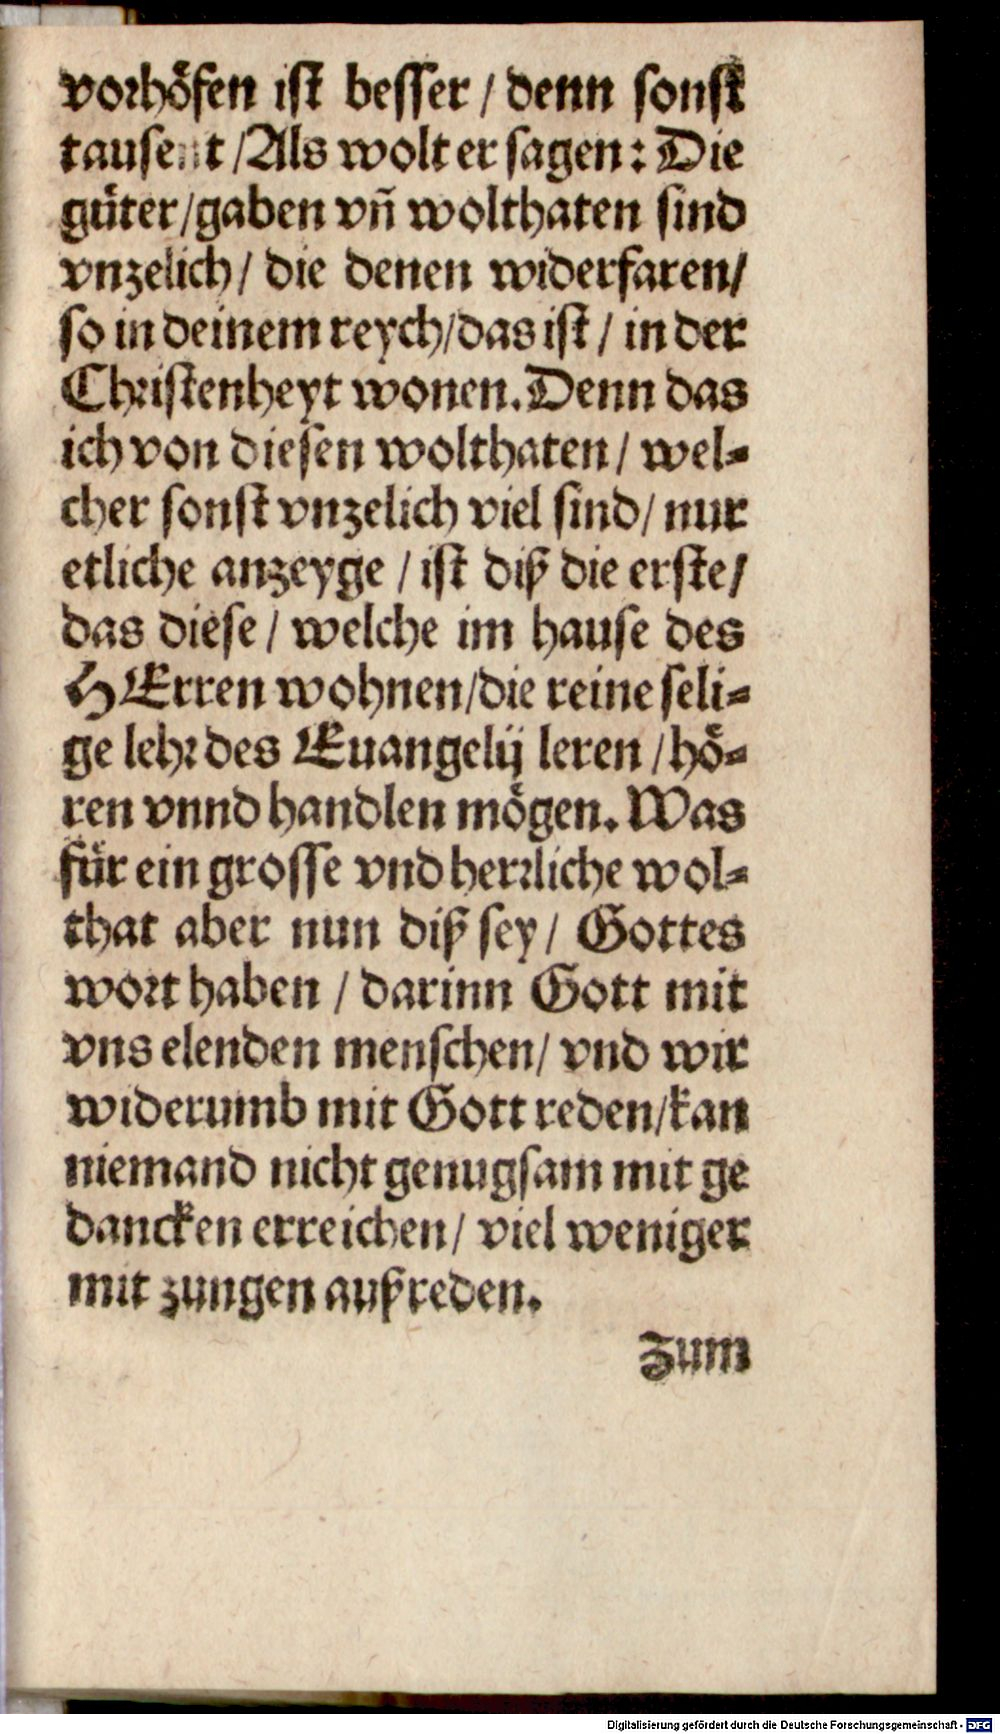 vorhöfen ist besser / denn sonst
tausent /Als wolt er sagen: Die
güter/gaben vñ wolthaten sind
vnzelich/ die denen widerfaren/
so in deinem reych/das ist / in der
Christenheyt wonen. Denn das
ich von diesen wolthaten / wel-
cher sonst vnzelich viel sind/ nur
etliche anzeyge / ist diß die erste/
das diese / welche im hause des
HErren wohnen/die reine seli-
ge lehr des Euangelij leren / hö-
ren vnnd handlen mögen. Was
für ein grosse vnd herrliche wol-
that aber nun diß sey / Gottes
wort haben / darinn Gott mit
vns elenden menschen/ vnd wir
widerumb mit Gott reden/kan
niemand nicht genugsam mit ge
dancken erreichen/ viel weniger
mit zungen außreden.
Zum
Digitalisierung gefördert durch die Deutsche Forschungsgemeinschaft - DFG